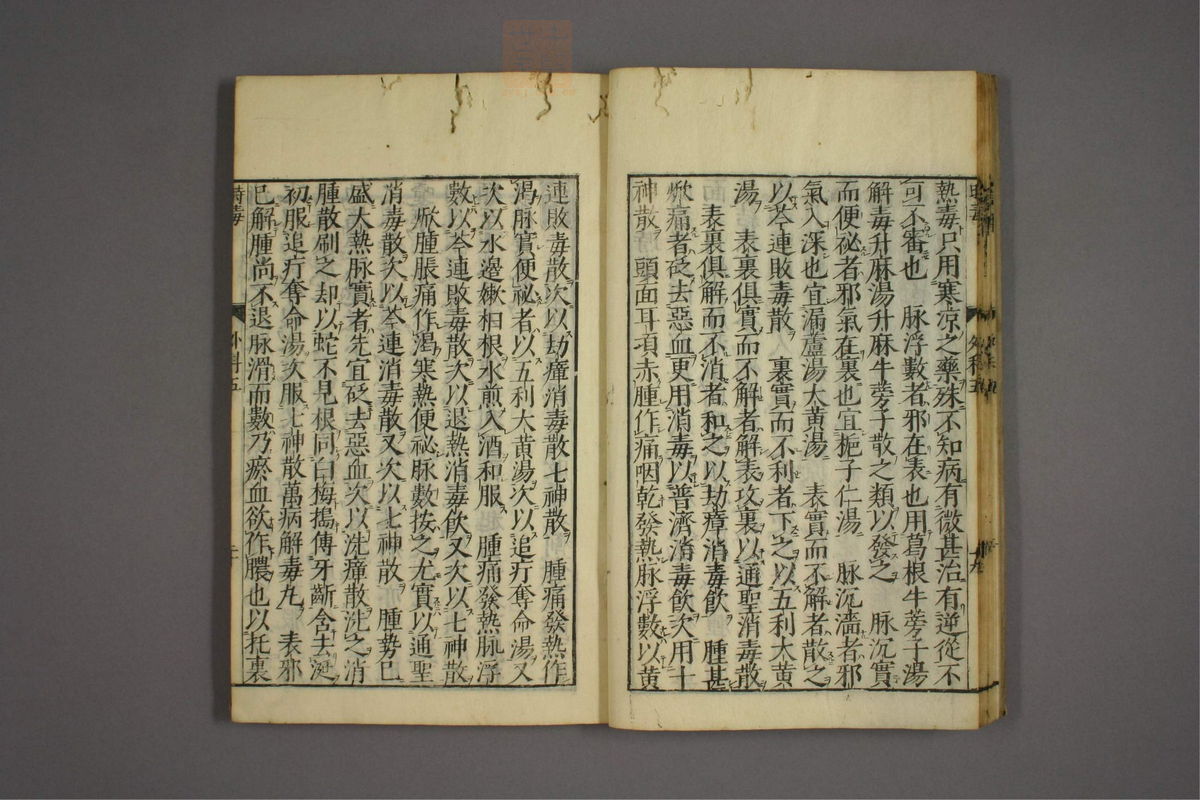 熱毒只用寒凉之藥殊不知病有微甚治有逆從不
可不審也　脉浮數者邪在表也用葛根牛蒡子湯
解毒升麻湯升麻牛蒡子散之類以發之　脉沉實
而便祕者邪氣在裏也宜梔子仁湯　脉沉濇者邪
氣入深也宜漏蘆湯大黄湯　表實而不解者散之
以芩連敗毒散　裏實而不利者下之以五利大黄
湯　表裏俱實而不解者解表攻裏以通聖消毒散
表裏俱解而不消者和之以劫瘴消毒飲　腫甚
焮痛者砭去惡血更用消毒以普濟消毒飲次用十
神散　頭面耳項赤腫作痛咽乾發熱脉浮數以黄
連敗毒散次以劫瘴消毒散七神散　腫痛發熱作
渴脉實便祕者以五利大黄湯次以追疔奪命湯又
次以水邊嫩柏根水煎入酒和服　腫痛發熱脉浮
數以芩連敗毒散次以退熱消毒飲又次以七神散
焮腫脹痛作渴寒熱便祕脉數按之尤實以通聖
消毒散次以芩連消毒散又次以七神散　腫勢已
盛大熱脉實者先宜砭去惡血次以洗瘴散洗之消
腫散刷之却以蛇不見根同白梅搗傅牙齗含去涎
初服追疔奪命湯次服七神散萬病解毒丸　表邪
已解腫尚不退脉滑而數乃瘀血欲作膿也以托裏
外科五